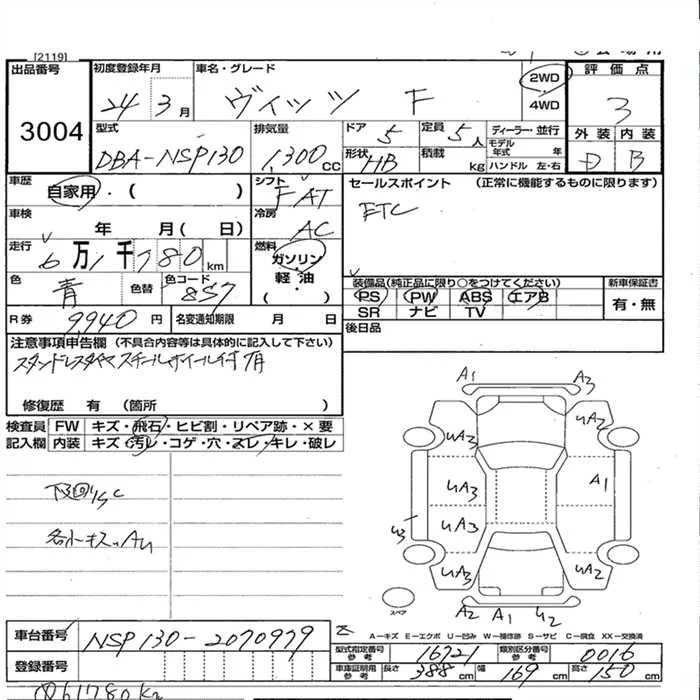 [2119]
出品番号 初度登録年月 車名・グレード 2WD 評価点
3004 24 3月 ヴィッツ F 4WD 3
型式 排気量 ドア 定員 ディーラー・並行 外装 内装
DBA-NSP130 1,300CC 5 5人 モデル年式 年 D B
形状 HB 積載 kg ハンドル 左・右
車歴 自家用・( ) シフト FAT セールスポイント (正常に機能するものに限ります)
車検 年 月( 日) 冷房 AC ETC
走行 6万1千780km 燃料 ガソリン・軽油・( )
色 青 色替 色コード 8S7
装備品(純正品に限り○をつけてください) 新車保証書
PS PW ABS エアB 有・無
SR ナビ TV
R券 9,940円 名変通知期限 月 日 後日品
注意事項申告欄 (不具合内容等は具体的に記入して下さい)
修復歴 有 (箇所 )
検査員記入欄 FW キズ・飛石・ヒビ割・リペア跡・×要
内装 キズ・汚レ・コゲ・穴・スレ・キレ・破レ
A1 A3
UA3 UA2
UA3 A1
UA3
U3
UA3 UA2
A2 A1 U2
スペア
A-キズ E-エクボ U-凹み W-補修跡 S-サビ C-腐食 XX-交換済
車台番号 NSP130-2070979
型式指定番号 参考 16721 類別区分番号 参考 0016
登録番号
車庫証明用 参考 長さ 388cm 幅 169cm 高さ 150cm
61780Km